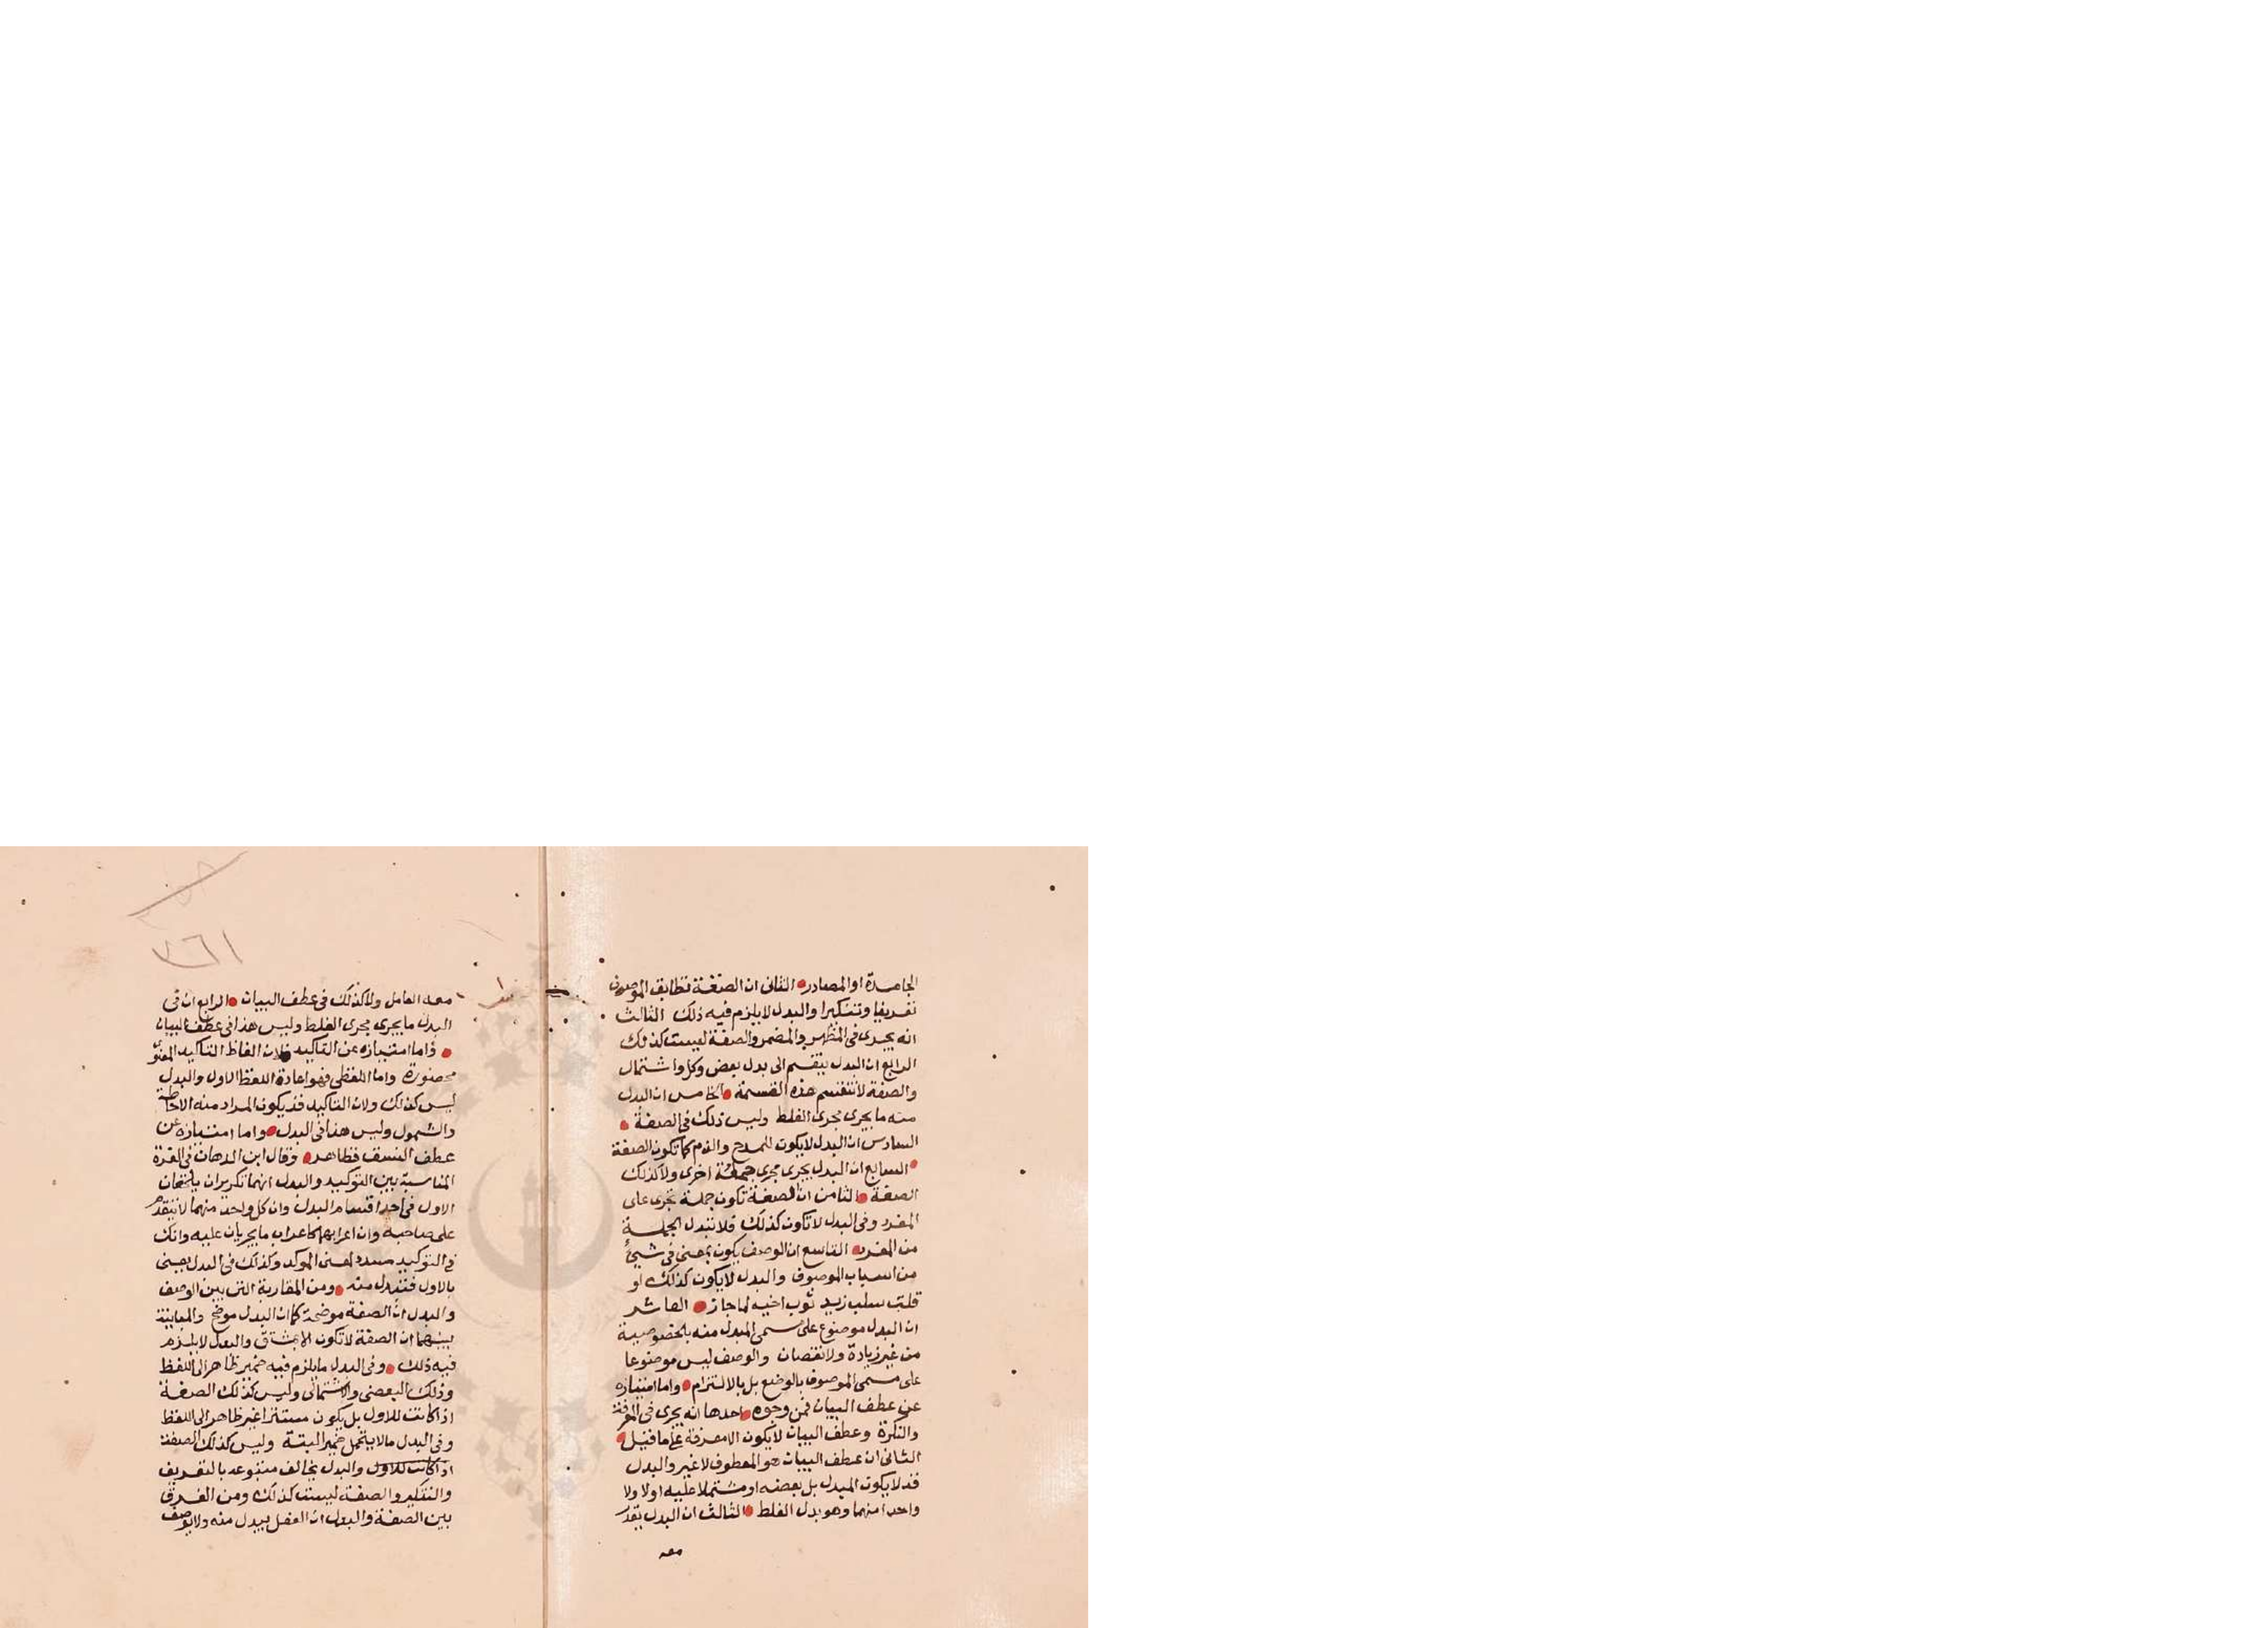 الجامدة او المصادر الثانى ان الصفة تطابق الموصوف
تعريفا وتنكيرا والبدل لا يلزم فيه ذلك الثالث
انه يجرى فى المظهر والمضمر والصفة ليست كذلك
الرابع ان البدل ينقسم الى بدل بعض وكل واشتمال
والصفة لا تنقسم هذه القسمة الخامس ان البدل
منه ما يجرى مجرى الغلط وليس ذلك فى الصفة
السادس ان البدل لا يكون للمدح والذم كما تكون الصفة
السابع ان البدل يجرى مجرى جملة اخرى ولا كذلك
الصفة الثامن ان الصفة تكون جملة تجرى على
المفرد وفى البدل لا تكون كذلك فلا تبدل الجملة
من المفرد التاسع ان الوصف يكون بمعنى فى شئ
من اسباب الموصوف والبدل لا يكون كذلك لو
قلت سلب زيد ثوب اخيه لما جاز العاشر
ان البدل موضوع على مسمى المبدل منه بالخصوصية
من غير زيادة ولا نقصان والوصف ليس موضوعا
على مسمى الموصوف بالوضع بل بالالتزام واما امتيازه
عن عطف البيان فمن وجوه احدها انه يجرى فى المعرفة
والنكرة وعطف البيان لا يكون الا معرفة على ما قيل
الثانى ان عطف البيان هو المعطوف لا غير والبدل
قد لا يكون المبدل بل بعضه او مشتملا عليه او لا ولا
واحدا منهما وهو بدل الغلط الثالث ان البدل يقدر
معه
٣٦١
معه العامل ولا كذلك فى عطف البيان الرابع ان فى
البدل ما يجرى مجرى الغلط وليس هذا فى عطف البيان
واما امتيازه عن التاكيد فلان الفاظ التاكيد المعنوى
محصورة واما اللفظى فهو اعادة اللفظ الاول والبدل
ليس كذلك ولان التاكيد قد يكون المراد منه الاحاطة
والشمول وليس هذا فى البدل واما امتيازه عن
عطف النسق فظاهر وقال ابن الدهان فى الغرة
المناسبة بين التوكيد والبدل انهما تكريران يلحقان
الاول فى احد اقسام البدل وان كل واحد منهما لا يتقدم
على صاحبه وان اعرابهما كاعراب ما يجريان عليه وانك
فى التوكيد مسدد لمعنى الموكد وكذلك فى البدل
بالاول فتبدل منه ومن المقاربة التى بين الوصف
والبدل ان الصفة موضحة كما ان البدل موضح والمباينة
بينهما ان الصفة لا تكون الا بمشتق والبدل لا يلزم
فيه ذلك وفى البدل ما يلزم فيه ضمير ظاهر الى اللفظ
وذلك البعضى والاشتمالى وليس كذلك الصفة
اذا كانت للاول بل يكون مستترا غير ظاهر الى اللفظ
وفى البدل ما لا يتحمل ضمير البتة وليس كذلك الصفة
اذا كانت للاول والبدل يخالف متبوعه بالتعريف
والتنكير والصفة ليست كذلك ومن الفرق
بين الصفة والبدل ان الفعل يبدل منه ولا يوصف